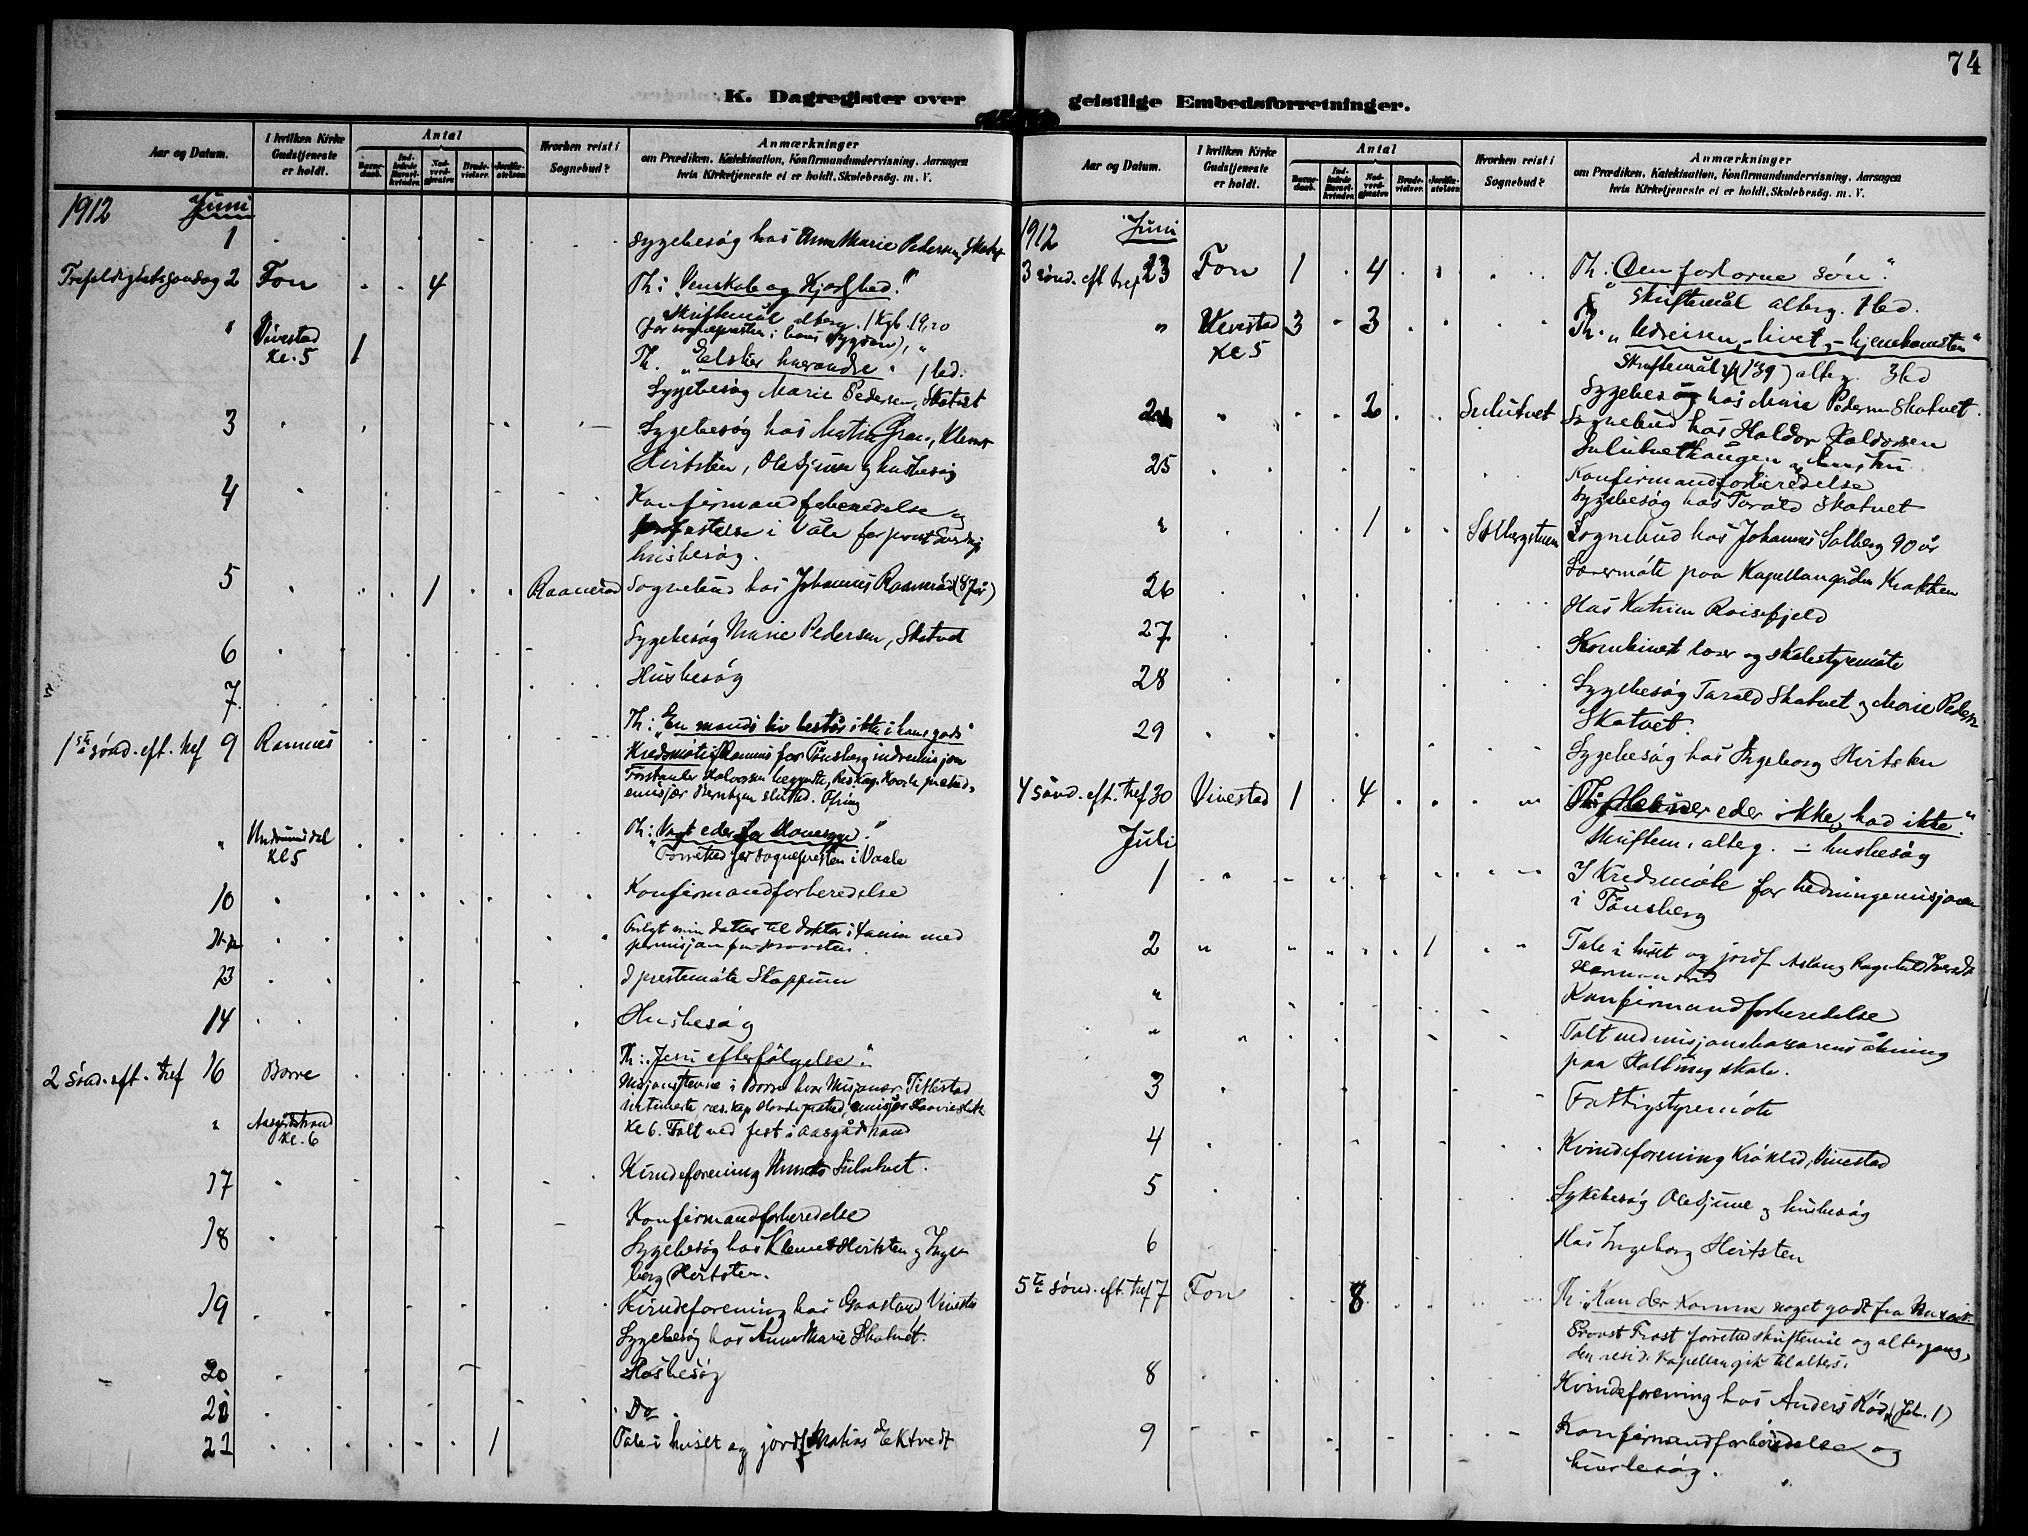 74
K. Dagregister over
Aar og Datum.
I hvilken Kirke Gudstjeneste er holdt.
Antal
Barne-daab.
Ind-ledede Barsel-kvinder.
Nad-verd-gjester.
Brude-vielser.
Jordfæ-stelser.
Hvorhen reist i Sognebud?
Anmærkninger
om Prædiken, Katekisation, Konfirmandundervisning, Aarsagen
hvis Kirketjeneste ei er holdt, Skolebesøg. m. V.
1912 Juni
1 Sygebesøg hos Anne Marie Pedersen, Skatvet
Trefoldighetssøndag 2 Fon 4 Th: "Venskab og Kjærlighed."
Skriftemål alterg. 1 Kgb. 19,20
for sognepresten i hans sygdom),
" Vivestad Kl. 5 1 Th. "Elsker hverandre" 1 led.
Sygebesøg Marie Pedersen, Skatvet
3 Sygebesøg hos Matia Gran, Klemet
Hirtsten, Ole Djuve og husbesøg
4 Konfirmandforberedelse og
i Våle for provst
husbesøg.
5 1 Raanerød Sognebud hos Johannes Raanerød (87 år)
6 Sygebesøg Marie Pedersen, Skatvet
7 Husbesøg
1ste sønd. eft. tref 9 Ramnes Th: "En mands liv består ikke i hans gods"
Kredsmøte i Ramnes for Tønsberg indremisjon
Forstander Halvorsen begyndte, Res. kap. Horde prated,
emisjær Berntsen slutted. Ofring
" Undrumsdal Kl 5 Th: "Vogt eder for Havesyge."
Forretted for sognepresten i Vaale
10 Konfirmandforberedelse
Fulgt min datter til doktor i med
permisjon fra provsten.
13 I prestemøte Skoppum
14 Husbesøg
2 sønd. eft. tref 16 Borre Th: "Jesu efterfølgelse."
Misjonsstevne i Borre hvor Misjonær Tillestad
res. kap. Horde prated, emisjær
" Aasgårdstrand Kl. 6 Kl 6. Talt ved fest i Aasgårdstrand
17 Kvindeforening Sulutvet.
18 Konfirmandforberedelse
Sygebesøg hos Klemet Hirtsten og Inge-
borg Hirtsten.
19 Kvindeforening hos Gaastad, Vivestad
Sygebesøg hos Anne Marie Skatvet.
20 Husbesøg
21 Do
22 1 Tale i huset og jordf Matias Ektvedt
geistlige Embedsforretninger.
Aar og Datum.
I hvilken Kirke Gudstjeneste er holdt.
Antal
Barne-daab.
Ind-ledede Barsel-kvinder.
Nad-verd-gjester.
Brude-vielser.
Jordfæ-stelser.
Hvorhen reist i Sognebud?
Anmærkninger
om Prædiken, Katekisation, Konfirmandundervisning, Aarsagen
hvis Kirketjeneste ei er holdt, Skolebesøg. m. V.
1912 Juni
3 sønd. eft tref 23 Fon 1 4 Th: "Den fortorne søn."
Skriftemål alterg. 1 led.
" Vivestad Kl 5 3 3 Th. "Udreisen, - livet, - hjemkomsten"
Skriftemål (139) alterg. 3 led
Sygebesøg hos Marie Pedersen Skatvet.
24 " 2 Sulutvet Sognebud hos Haldor Haldorsen
Sulutvethaugen og hustru
25 Konfirmandforberedelse
Sygebesøg hos Tarald Skatvet
" 1 Solbergstuen Sognebud hos Johannes Solberg 90 år
26 paa Kapellangården
Hos Katrine Roisefjeld
27 Kombinert og skolestyremøte
28 Sygebesøg Tarald Skatvet og Marie Pedersen
Skatvet.
29 Sygebesøg hos Ingeborg Hirtsten
4 sønd. eft. tref 30 Vivestad 1 4 Th: eder ikke, had ikke."
Skriftem. alterg. - husbesøg
Juli
1 I Kredsmøte for hedningemisjonen
i Tønsberg
2 " 1 Tale i huset og jordf Aslaug Ragnhild
" Konfirmandforberedelse
" Talt ved misjonsbasarens åbning
paa skole.
3 Fattigstyremøte
4 Kvindeforening Vivestad
5 Sykebesøg Ole Djuve og husbesøg
6 Hos Ingeborg Hirtsten
5te sønd. eft. tref 7 Fon 8 Th: "Kan der komme noget godt fra Nazaret
Provst Frost forretted skriftemål og altergang,
den resid. Kapellan gik til alters.
8 Kvindeforening hos Anders Rød (Joh. 1)
9 Konfirmandforberedelse og
husbesøg.